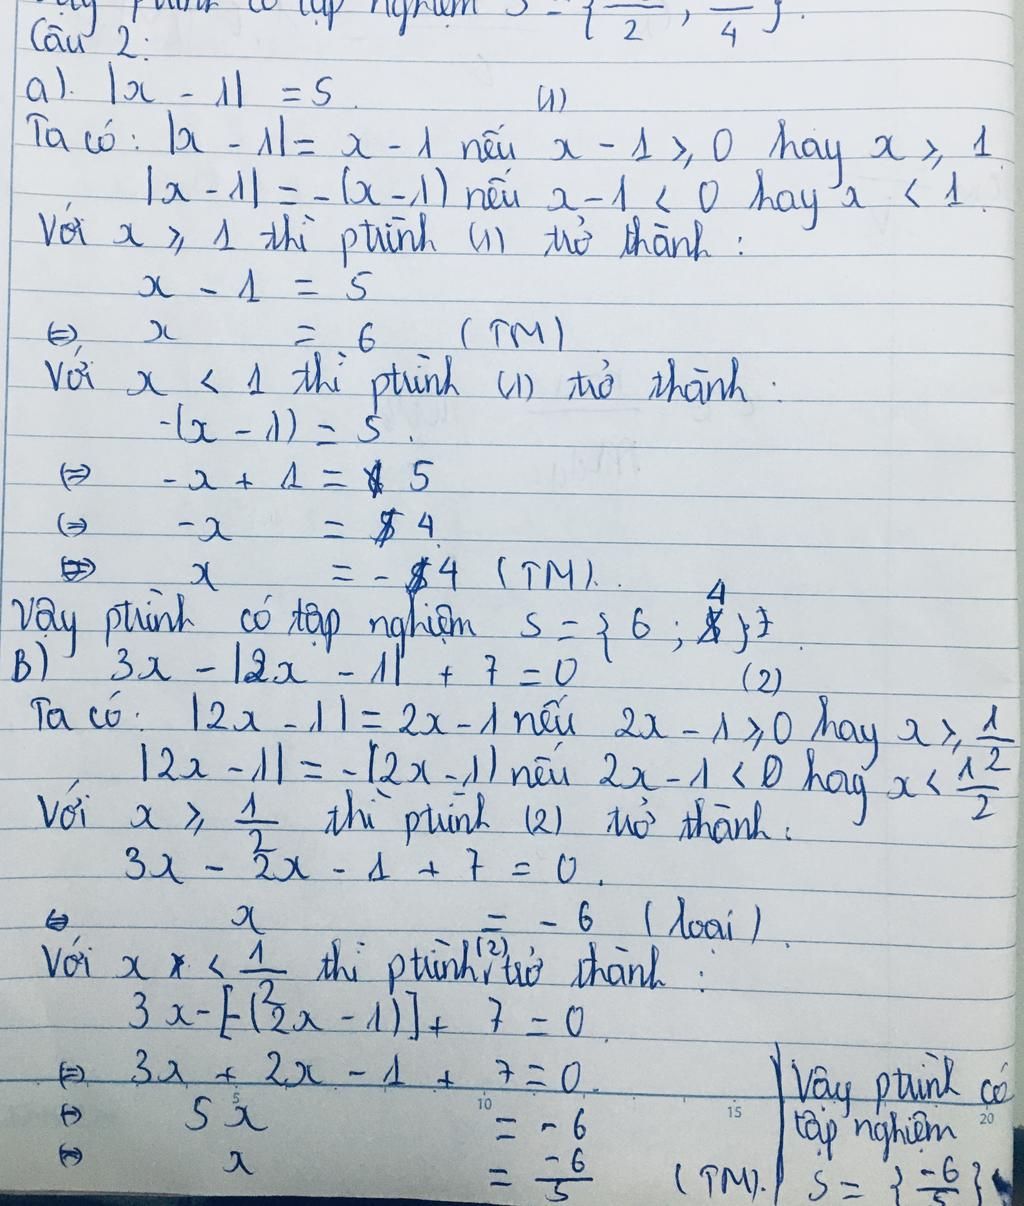 ptrình có tập nghiệm S = { /2 , /4 }.
Câu 2:
a). |x - 1| = 5. (1)
Ta có: |x - 1| = x - 1 nếu x - 1 ⩾ 0 hay x ⩾ 1
|x - 1| = -(x - 1) nếu x - 1 < 0 hay x < 1.
Với x ⩾ 1 thì ptrình (1) trở thành:
x - 1 = 5
⇔ x = 6 (TM)
Với x < 1 thì ptrình (1) trở thành:
-(x - 1) = 5.
⇔ -x + 1 = 5
⇔ -x = 4
⇔ x = -4 (TM).
Vậy ptrình có tập nghiệm S = { 6 ; 4 }.
B) 3x - |2x - 1| + 7 = 0 (2)
Ta có: |2x - 1| = 2x - 1 nếu 2x - 1 ⩾ 0 hay x ⩾ 1/2
|2x - 1| = -(2x - 1) nếu 2x - 1 < 0 hay x < 1/2
Với x ⩾ 1/2 thì ptrình (2) trở thành:
3x - 2x - 1 + 7 = 0.
⇔ x = - 6 (loại).
Với x < 1/2 thì ptrình (2) trở thành:
3x - [-(2x - 1)] + 7 = 0
⇔ 3x + 2x - 1 + 7 = 0.
⇔ 5x = - 6
⇔ x = -6/5 (TM).
Vậy ptrình có
tập nghiệm
S = { -6/5 }
5 10 15 20